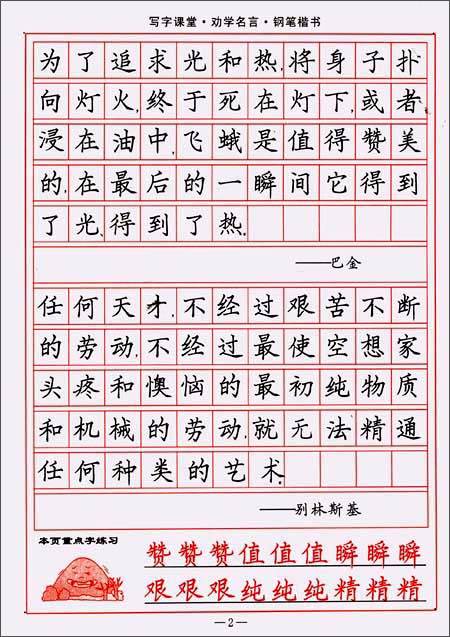 写字课堂·劝学名言·钢笔楷书
为了追求光和热,将身子扑
向灯火,终于死在灯下,或者
浸在油中,飞蛾是值得赞美
的,在最后的一瞬间它得到
了光,得到了热.
——巴金
任何天才,不经过艰苦不断
的劳动,不经过最使空想家
头疼和懊恼的最初纯物质
和机械的劳动,就无法精通
任何种类的艺术.
——别林斯基
本页重点字练习
赞赞赞值值值瞬瞬瞬
艰艰艰纯纯纯精精精
—2—